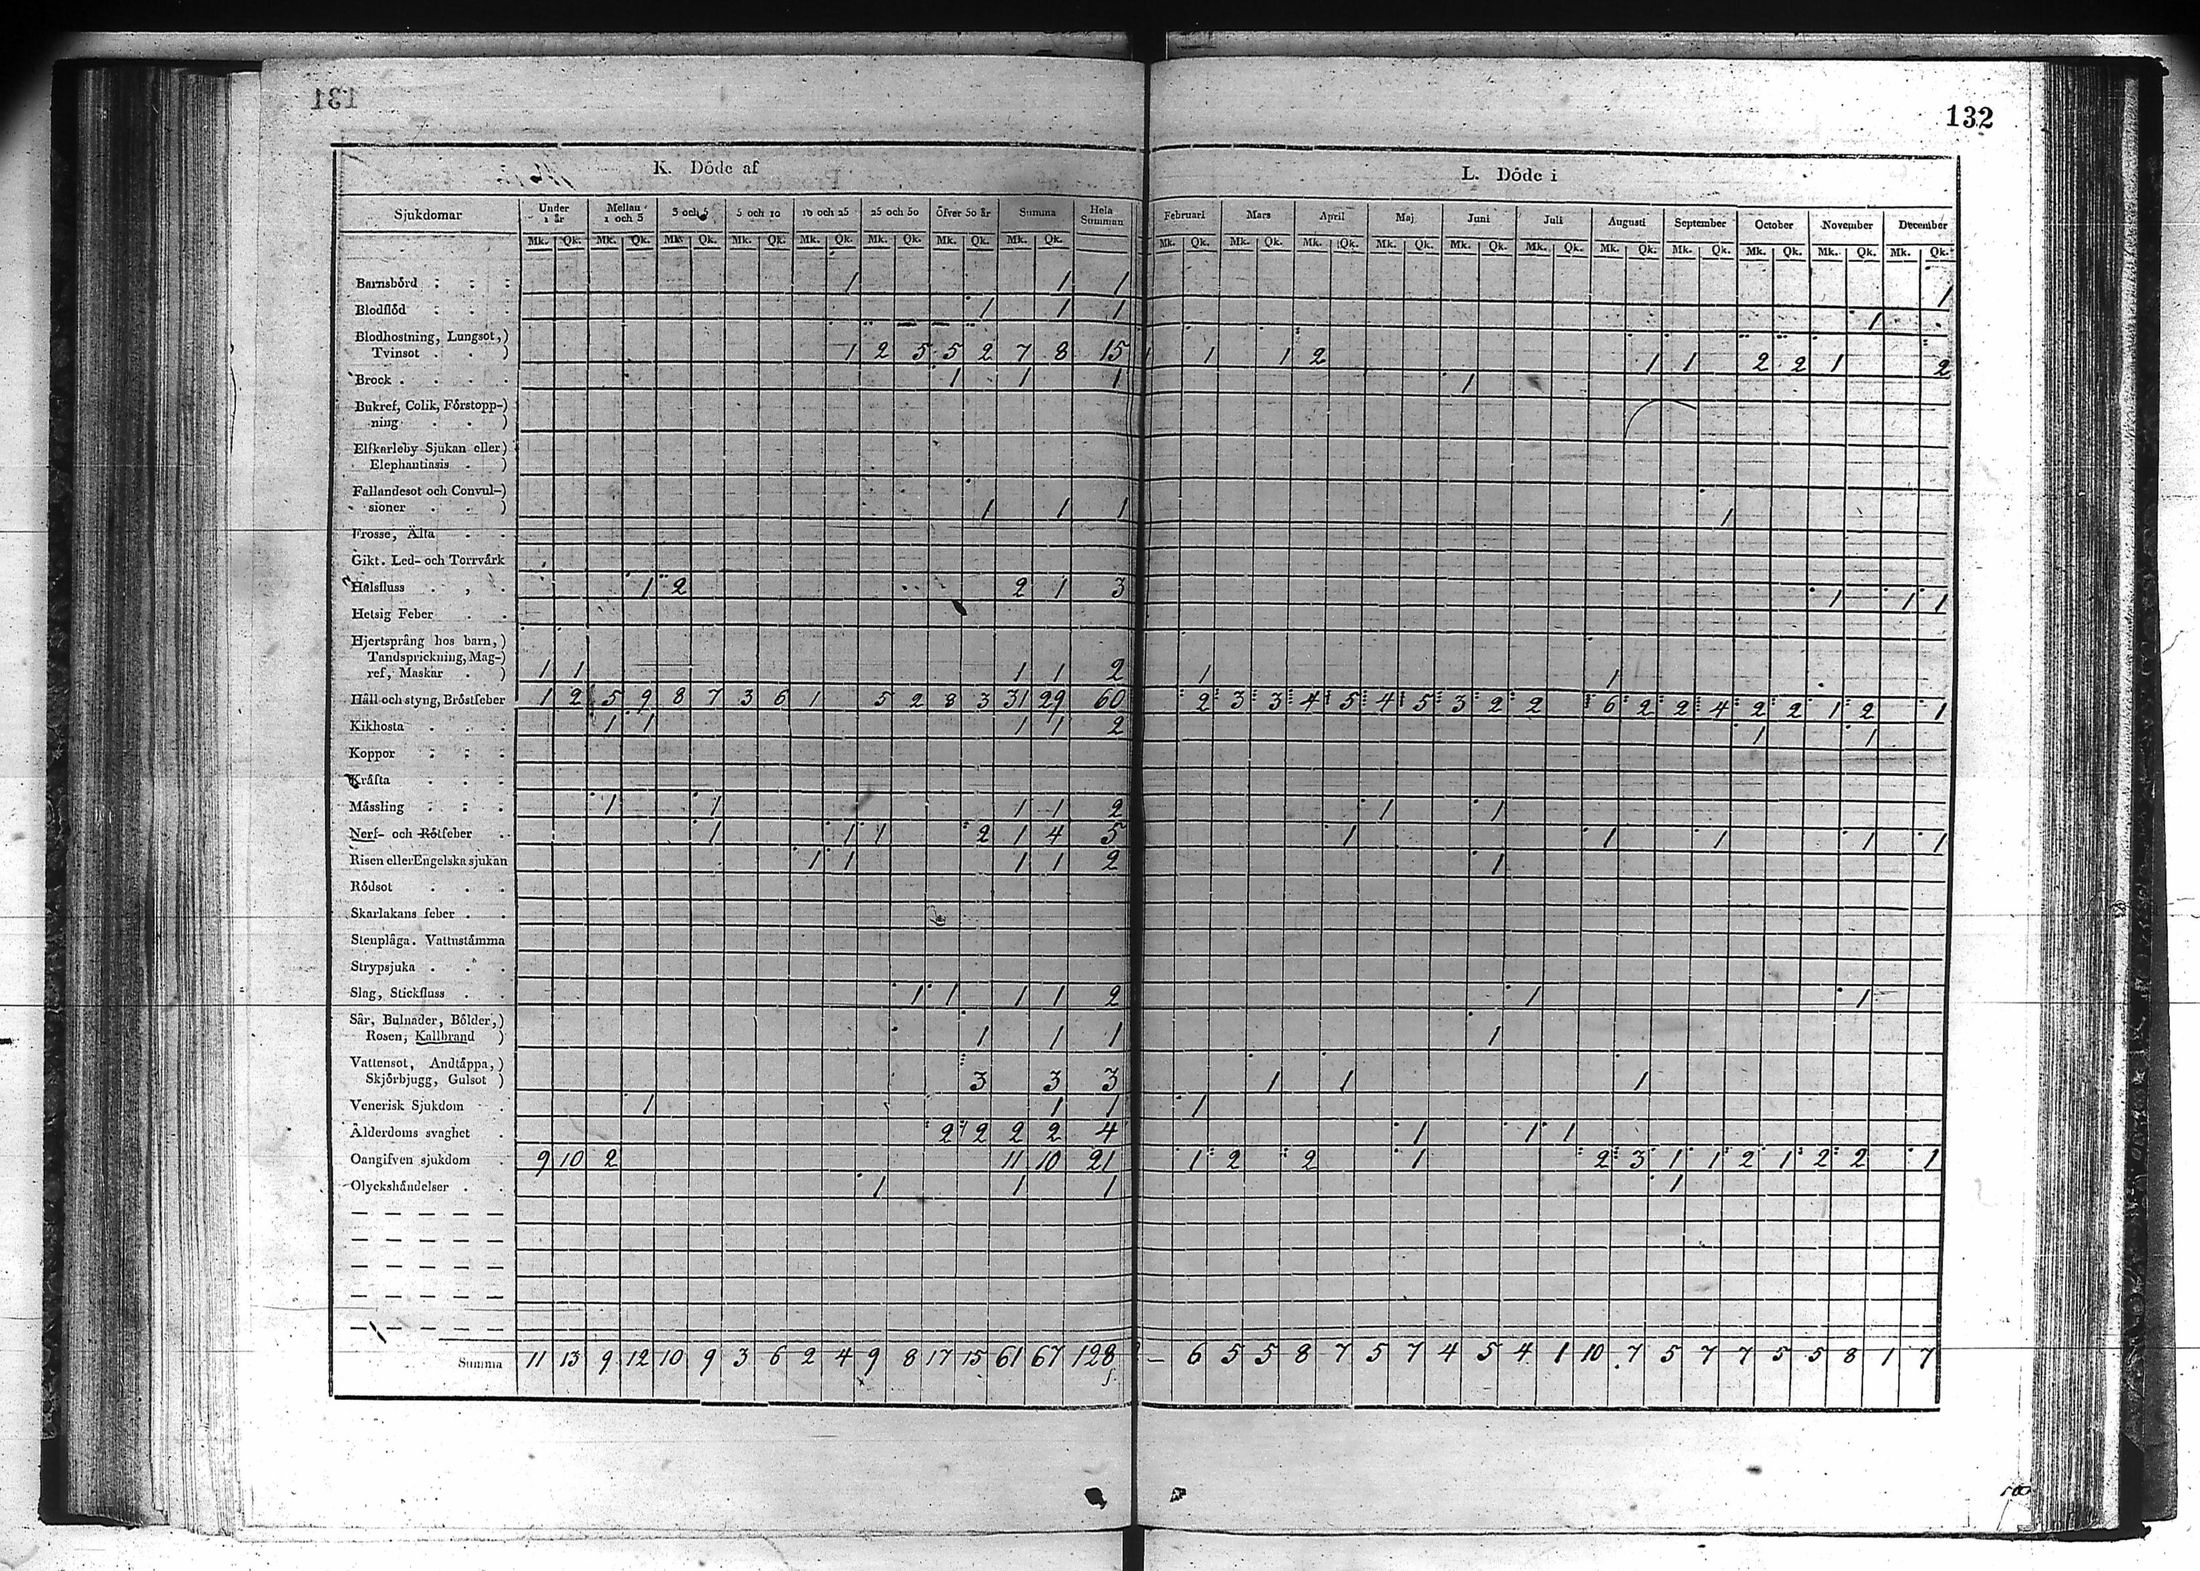 131
132
K. Döde af
L. Döde i
Sjukdomar Under 1 år Mellan 1 och 3 3 och 5 5 och 10 10 och 25 25 och 50 Öfver 50 år Summa Hela Summan Februari Mars April Maj Juni Juli Augusti September October November December
Mk. Qk. Mk. Qk. Mk. Qk. Mk. Qk. Mk. Qk. Mk. Qk. Mk. Qk. Mk. Qk. Mk. Qk. Mk. Qk. Mk. Qk. Mk. Qk. Mk. Qk. Mk. Qk. Mk. Qk. Mk. Qk. Mk. Qk. Mk. Qk. Mk. Qk.
Barnsbörd 1 1 1 1
Blodflöd 1 1 1 1
Blodhostning, Lungsot,)
Tvinsot . . ) 1 2 5 5 2 7 8 15 1 1 2 1 1 2 2 1 2
Brock . . . . 1 1 1 1
Bukref, Colik, Förstopp-)
ning . . )
Elfkarleby Sjukan eller)
Elephantiasis . )
Fallandesot och Convul-)
sioner . . ) 1 1 1 1
Frosse, Älta . .
Gikt. Led- och Torrvärk
Halsfluss . , . 1 2 2 1 3 1 1 1
Hetsig Feber . .
Hjertsprång hos barn, )
Tandsprickning, Mag-)
ref, Maskar . ) 1 1 1 1 2 1 1
Håll och styng, Bröstfeber 1 2 5 9 8 7 3 6 1 5 2 8 3 31 29 60 2 3 3 4 5 4 5 3 2 2 6 2 2 4 2 2 1 2 1
Kikhosta . . . 1 1 1 1 2 1 1
Koppor
Kräfta . . .
Mässling 1 1 1 1 2 1 1
Nerf- och Rötfeber . 1 1 1 2 1 4 5 1 1 1 1 1
Risen eller Engelska sjukan 1 1 1 1 2 1
Rödsot . . .
Skarlakans feber . .
Stenplåga. Vattustämma
Strypsjuka . . .
Slag, Stickfluss . . 1 1 1 1 2 1 1
Sår, Bulnader, Bölder,)
Rosen, Kallbrand ) 1 1 1 1
Vattensot, Andtäppa, )
Skjörbjugg, Gulsot ) 3 3 3 1 1 1
Venerisk Sjukdom . 1 1 1 1
Ålderdoms svaghet . 2 2 2 2 4 1 1 1
Oangifven sjukdom . 9 10 2 11 10 21 1 2 2 1 2 3 1 1 2 1 2 2 1
Olyckshändelser . . 1 1 1 1
Summa 11 13 9 12 10 9 3 6 2 4 9 8 17 15 61 67 128 — 6 5 5 8 7 5 7 4 5 4 1 10 7 5 7 7 5 5 8 1 7